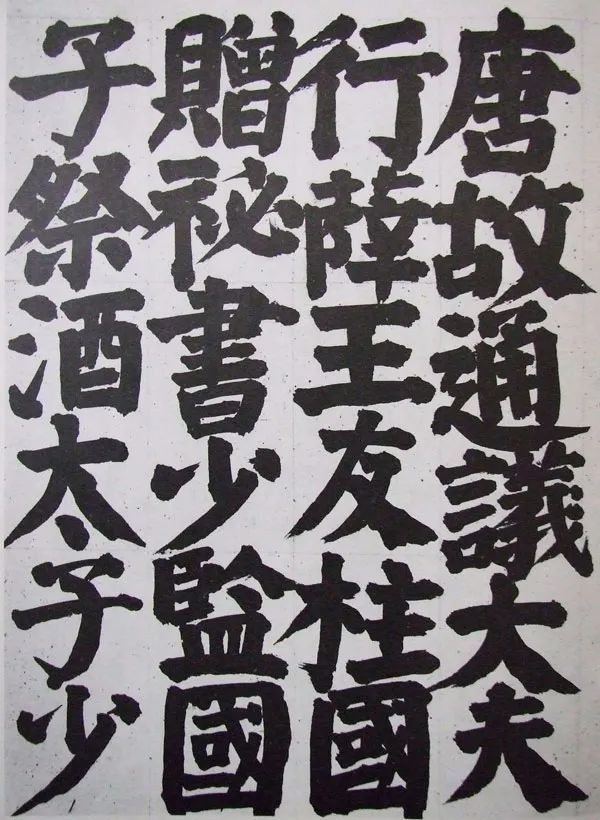 唐故通議大夫
行薛王友柱國
贈祕書少監國
子祭酒太子少